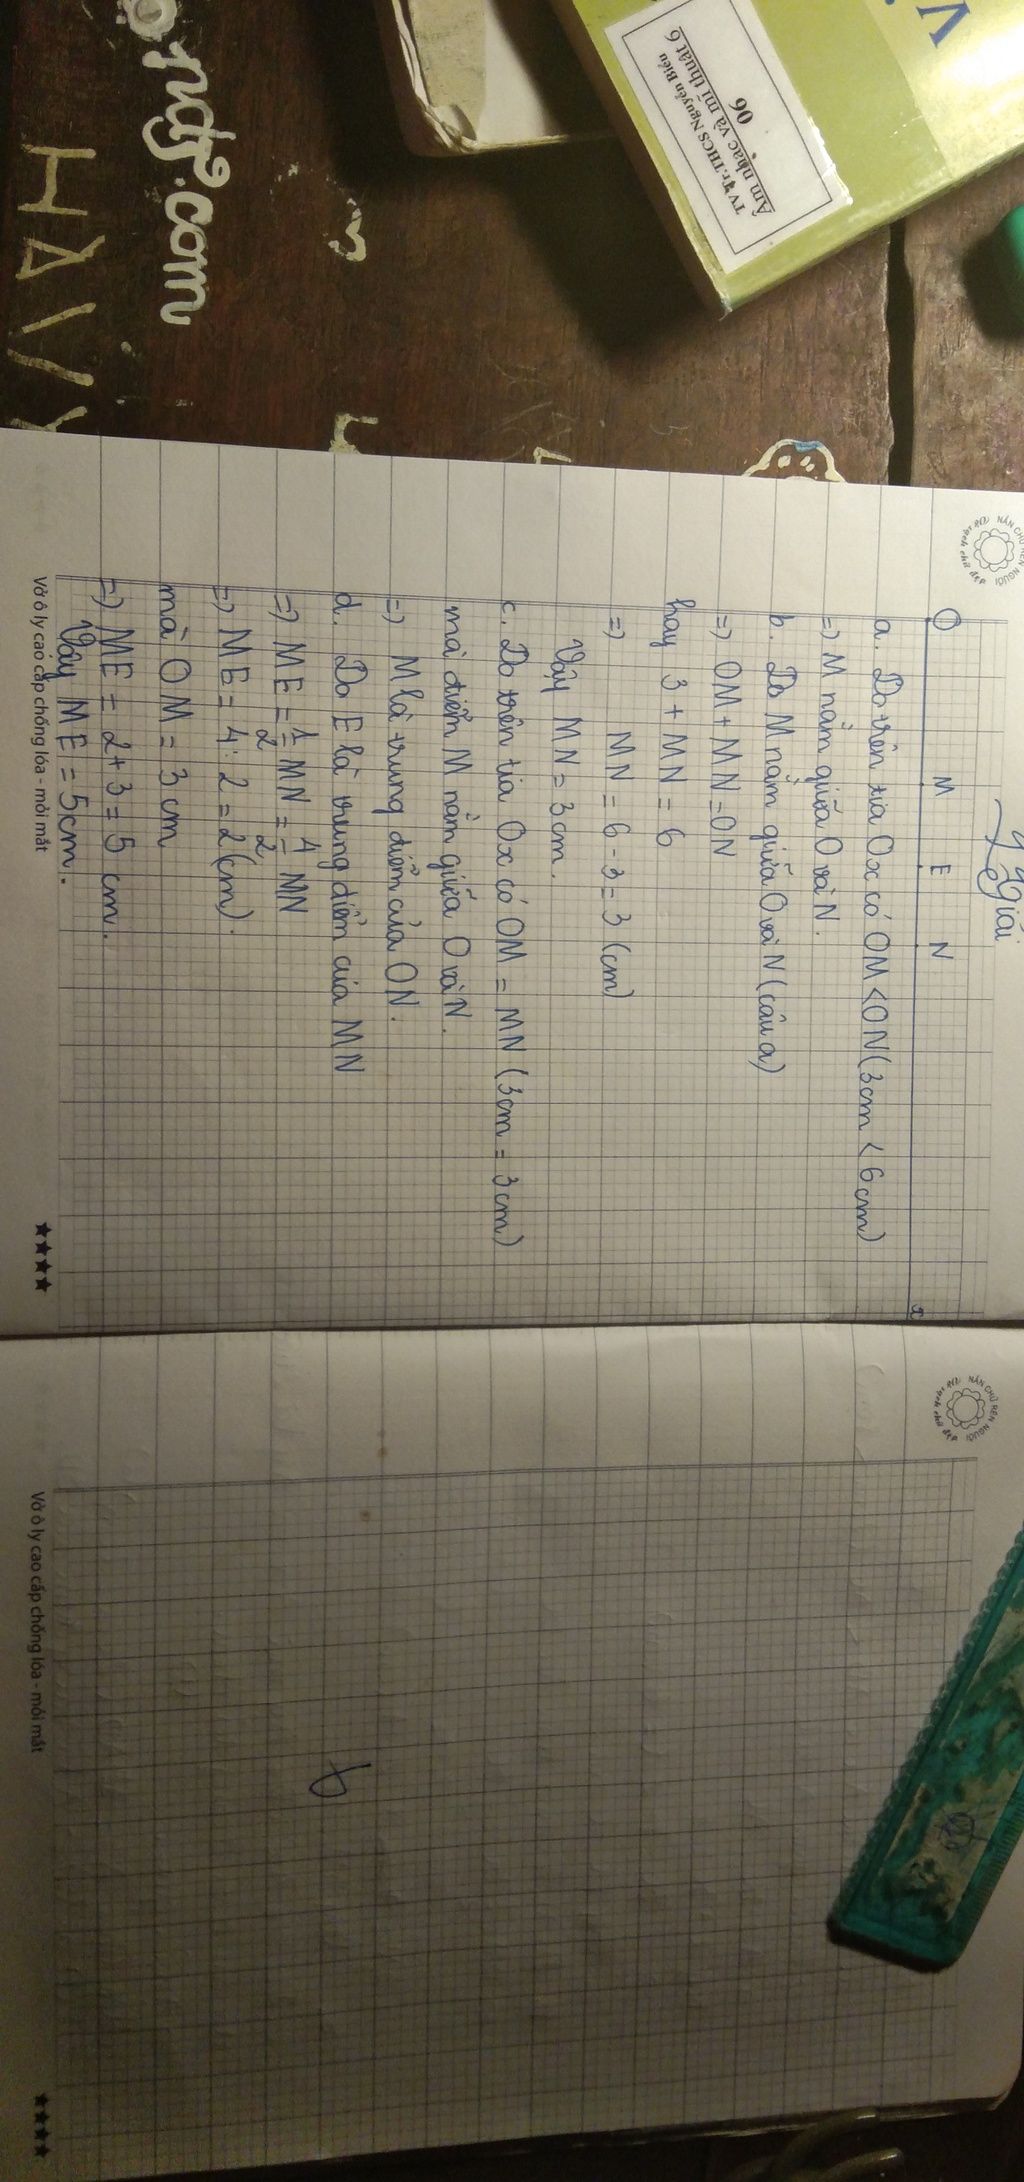 TV Tr.THCS Nguyễn Biểu
Âm nhạc và mĩ thuật 6
06
ngơ.com
HAV
NẮN CHỮ RÈN NGƯỜI
Giải
O M E N x
a. Do trên tia Ox có OM < ON (3cm < 6cm)
=) M nằm giữa O và N.
b. Do M nằm giữa O và N (câu a)
=) OM + MN = ON
hay 3 + MN = 6
=) MN = 6 - 3 = 3 (cm)
Vậy MN = 3cm.
c. Do trên tia Ox có OM = MN (3cm = 3cm)
mà điểm M nằm giữa O và N.
=) M là trung điểm của ON.
d. Do E là trung điểm của MN
=) ME = 1/2 MN = 4/2 MN
=) ME = 4 : 2 = 2 (cm).
mà OM = 3 cm
=) ME = 2 + 3 = 5 cm.
Vậy ME = 5cm.
Vở ô ly cao cấp chống lóa - mỏi mắt
NẮN CHỮ RÈN NGƯỜI
Vở ô ly cao cấp chống lóa - mỏi mắt